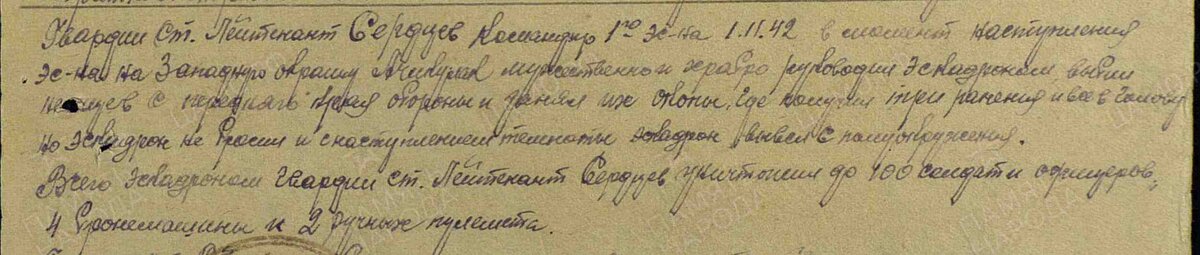 Гвардии Ст. Лейтенант Сердцев Командир 1го эс-на 1.11.42 в момент наступления
эс-на на Западную окраину Ачикулак мужественно и храбро руководил Эскадроном выбил
немцев с переднего края обороны и занял их окопы, где получил три ранения и все в голову
но Эскадрон не бросил и с наступлением темноты эскадрон вывел с полуокружения.
Всего эскадроном Гвардии ст. Лейтенант Сердцев уничтожил до 100 солдат и офицеров,
4 Бронемашины и 2 ручных пулемета.